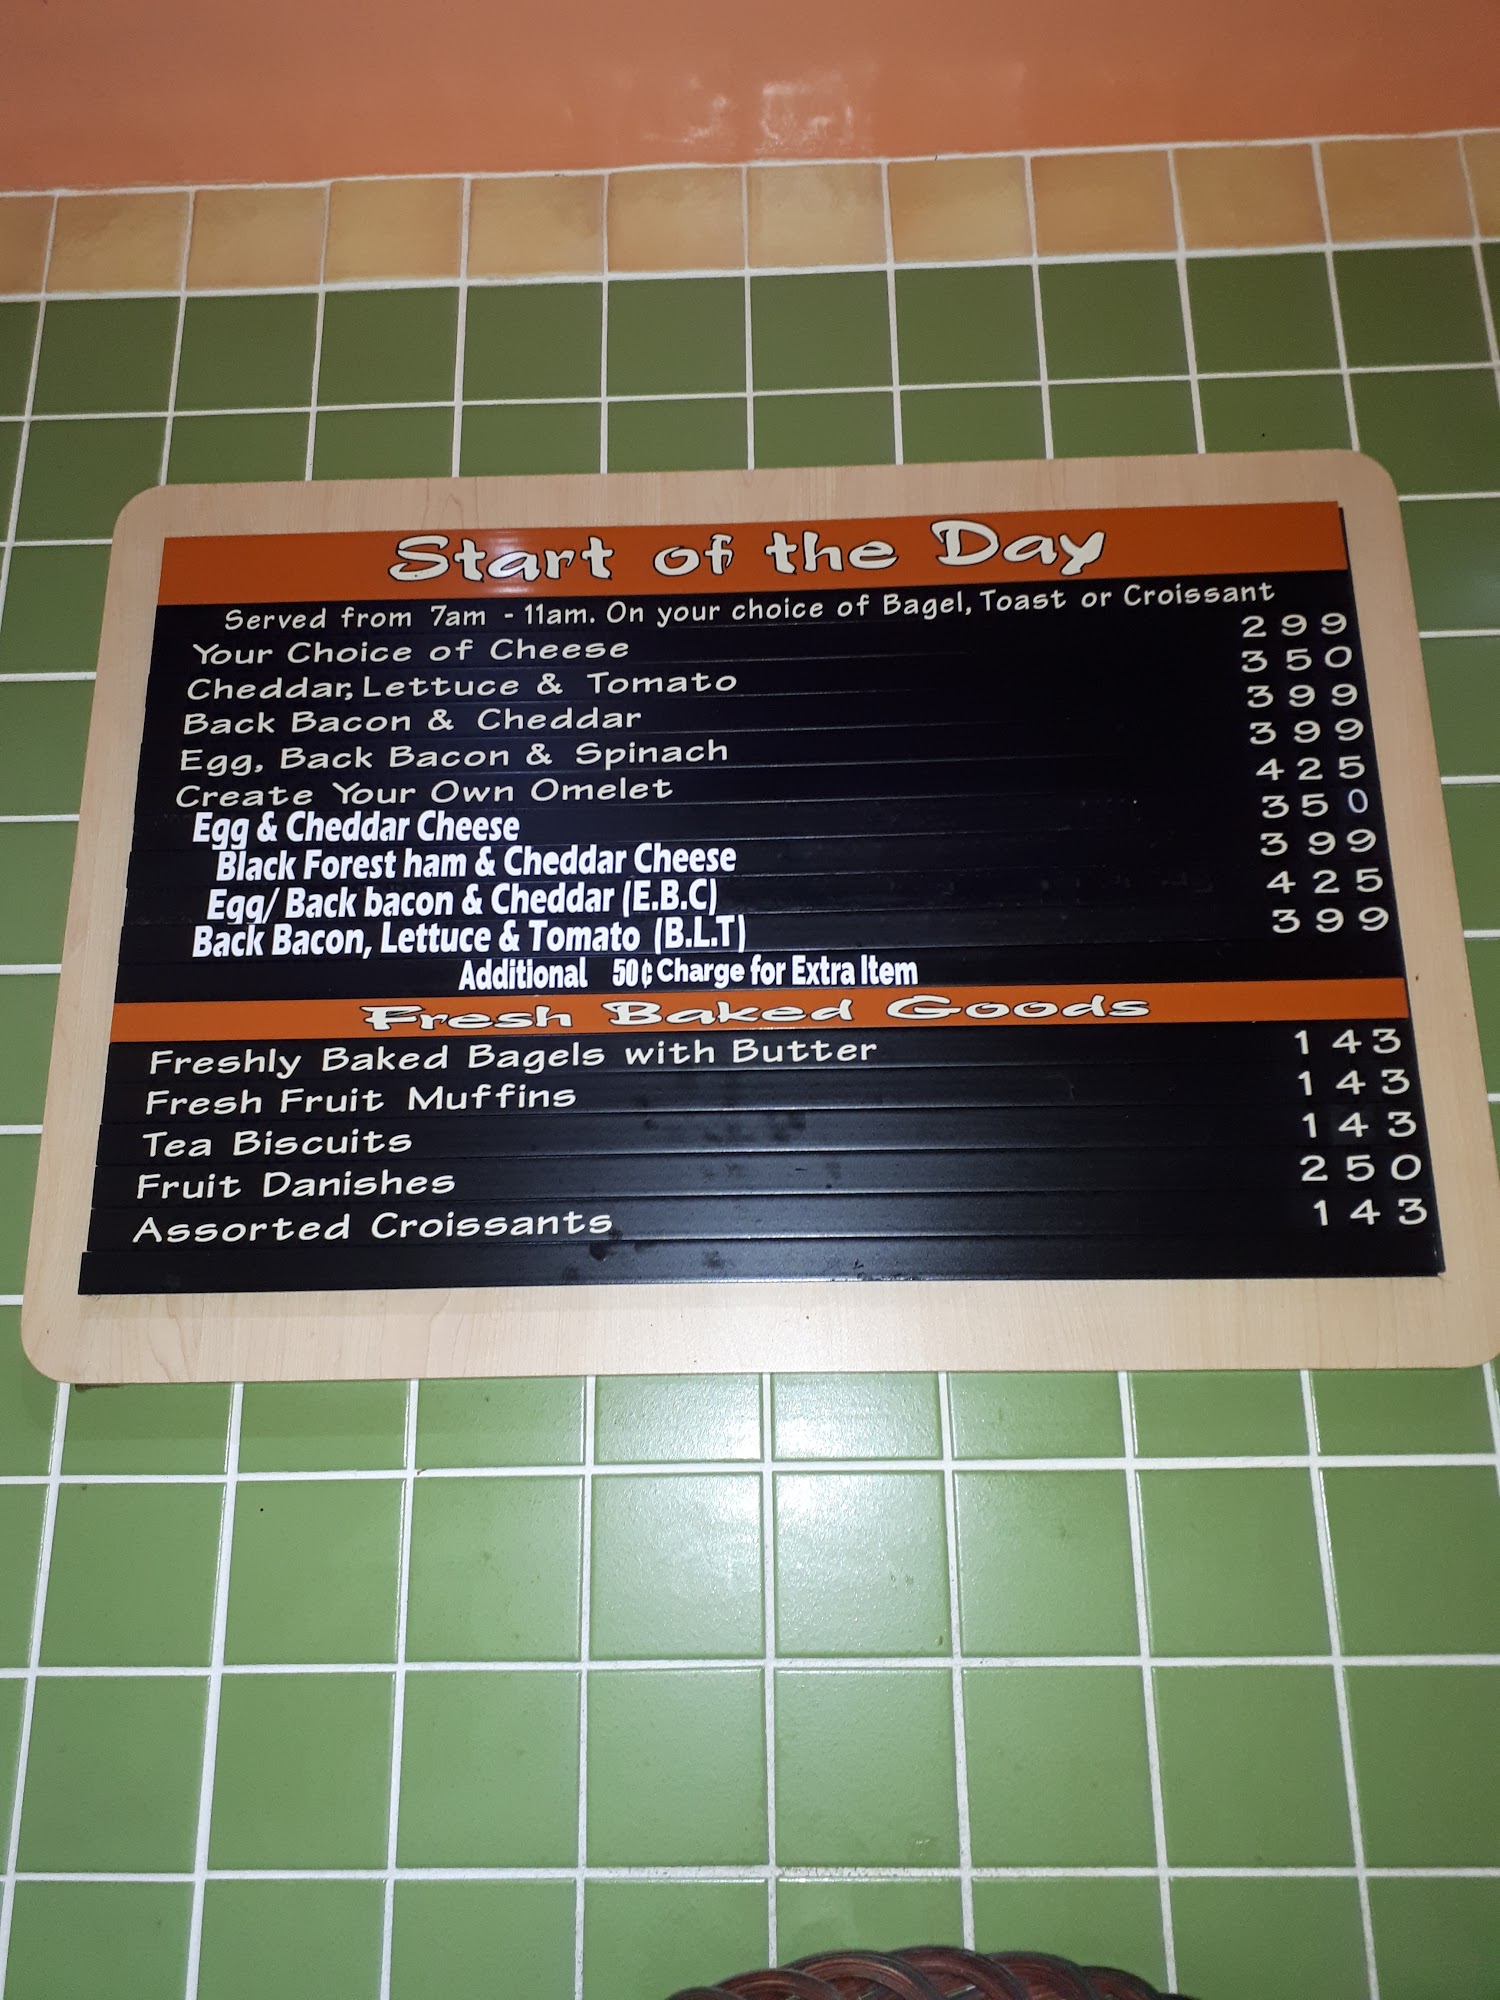 Start of the Day
Served from 7am - 11am. On your choice of Bagel, Toast or Croissant
Your Choice of Cheese 299
Cheddar, Lettuce & Tomato 350
Back Bacon & Cheddar 399
Egg, Back Bacon & Spinach 399
Create Your Own Omelet 425
Egg & Cheddar Cheese 350
Black Forest ham & Cheddar Cheese 399
Egg/ Back bacon & Cheddar (E.B.C) 425
Back Bacon, Lettuce & Tomato (B.L.T) 399
Additional 50¢ Charge for Extra Item
Fresh Baked Goods
Freshly Baked Bagels with Butter 143
Fresh Fruit Muffins 143
Tea Biscuits 143
Fruit Danishes 250
Assorted Croissants 143